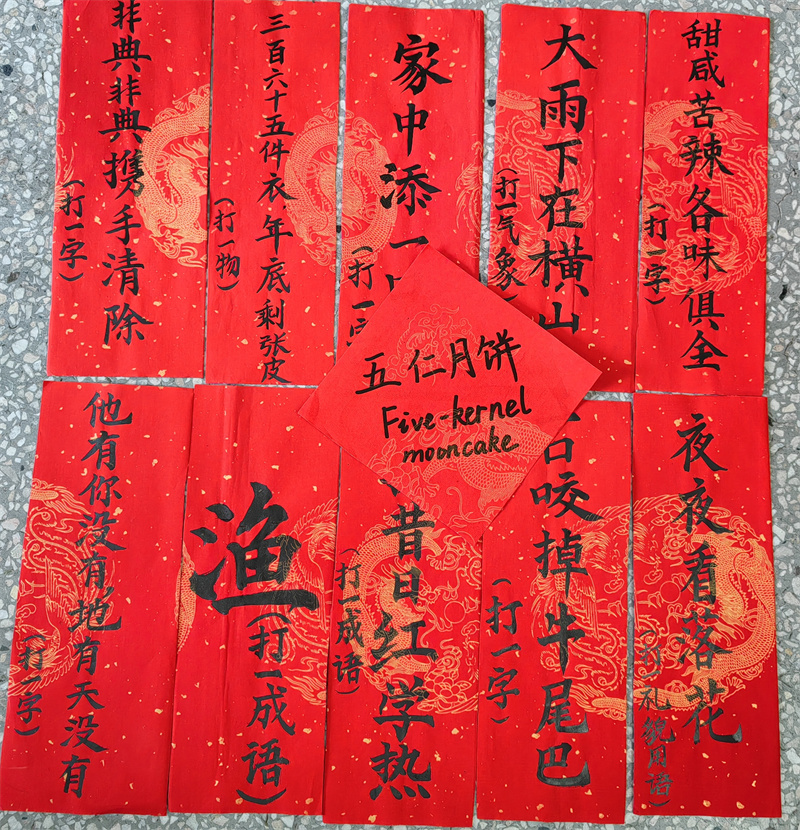 非典非典携手清除
(打一字)
三百六十五件衣年底剩张皮
(打一物)
家中添一
(打一字
大雨下在横山
(打一气象)
甜咸苦辣各味俱全
(打一字)
五仁月饼
Five-kernel
mooncake
他有你没有,地有天没有
(打一字)
渔
(打一成语)
昔日红学热
(打一成语)
口咬掉牛尾巴
(打一字)
夜夜看落花
(打一礼貌用语)